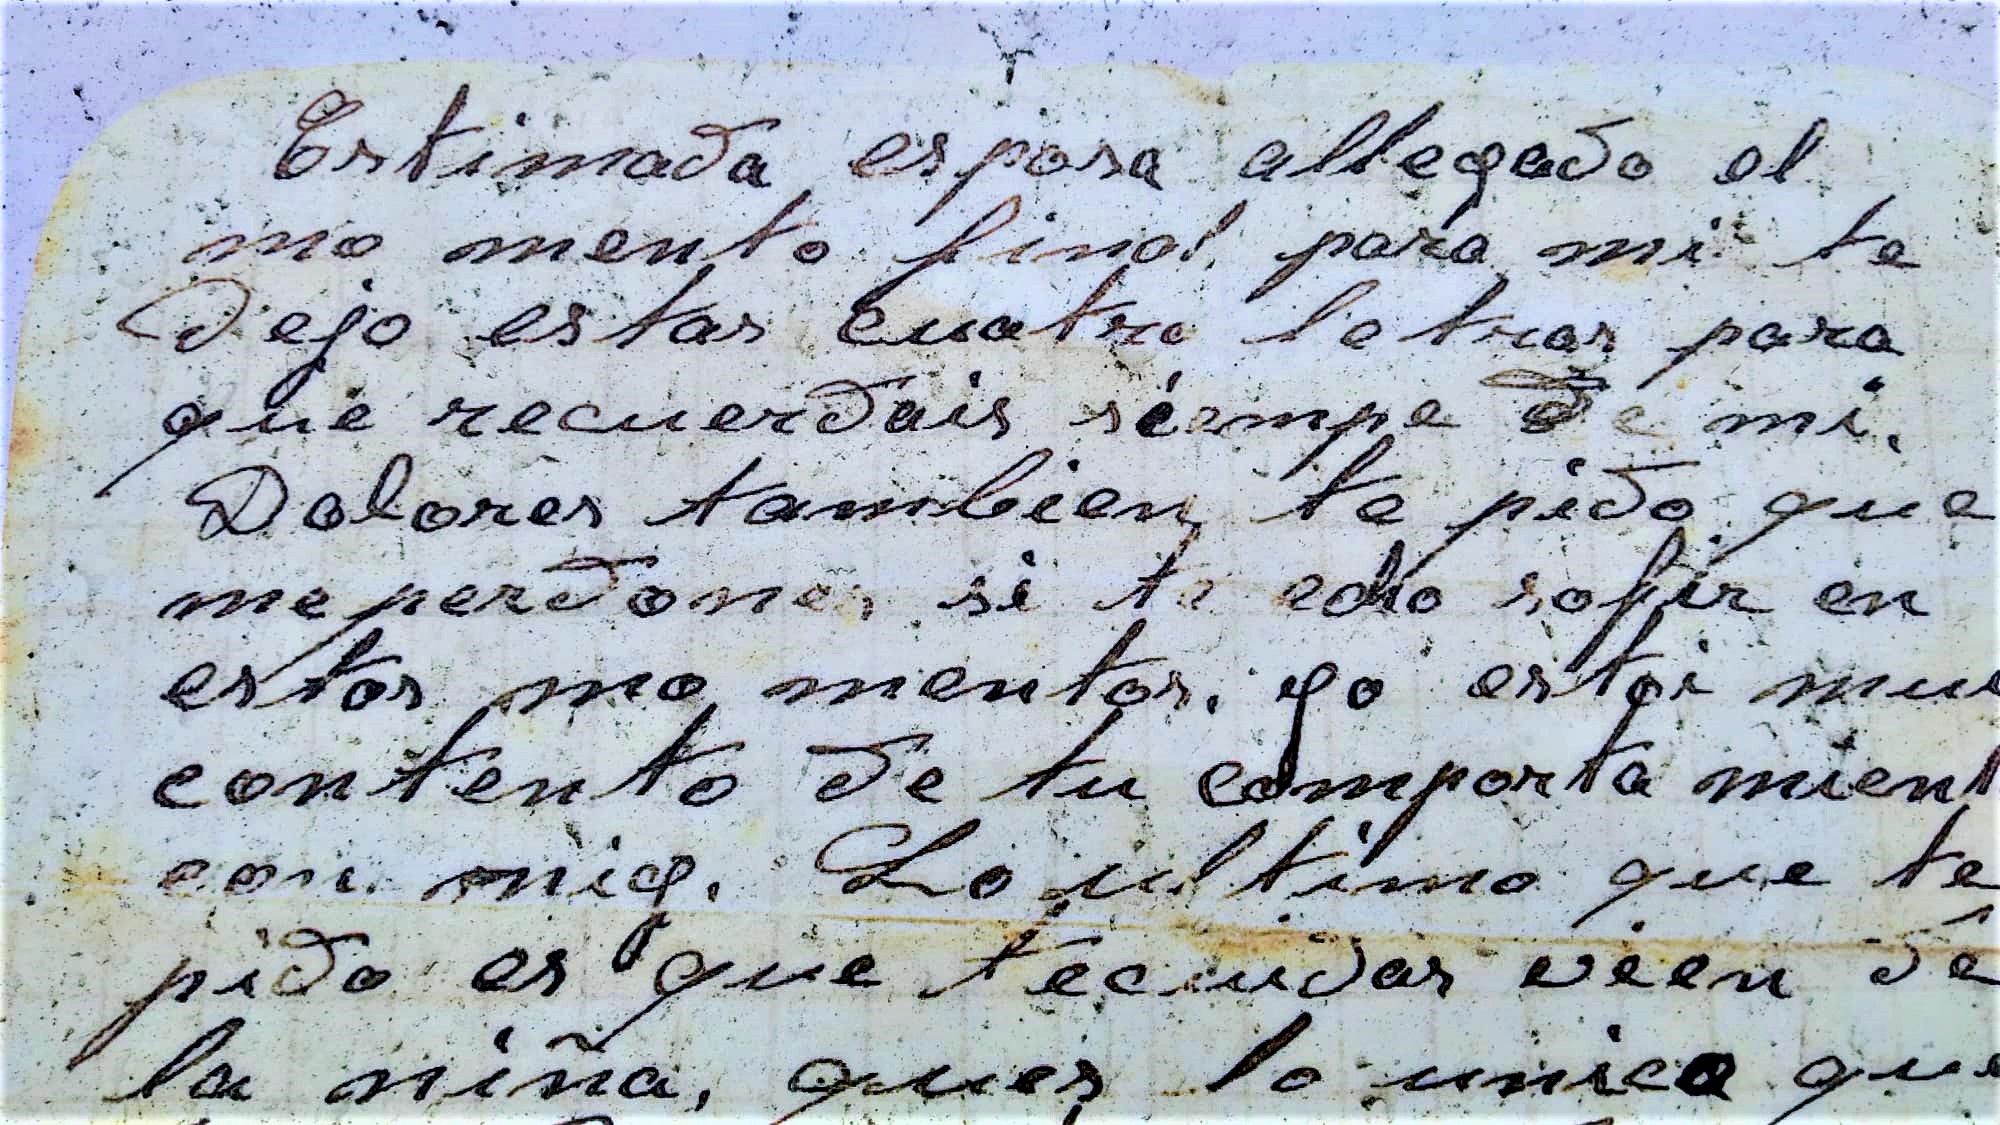 Estimada esposa allegado el
mo mento final para mi te
Dejo estas cuatro letras para
que recuerdais siempe de mi.
Dolores tambien te pido que
me perdones si te edo sofir en
estos mo mentos. yo estoi mui
contento de tu comporta mient
con mig. Lo ultimo que te
pido es que tecuidas vien de
la niña, ques lo unico que